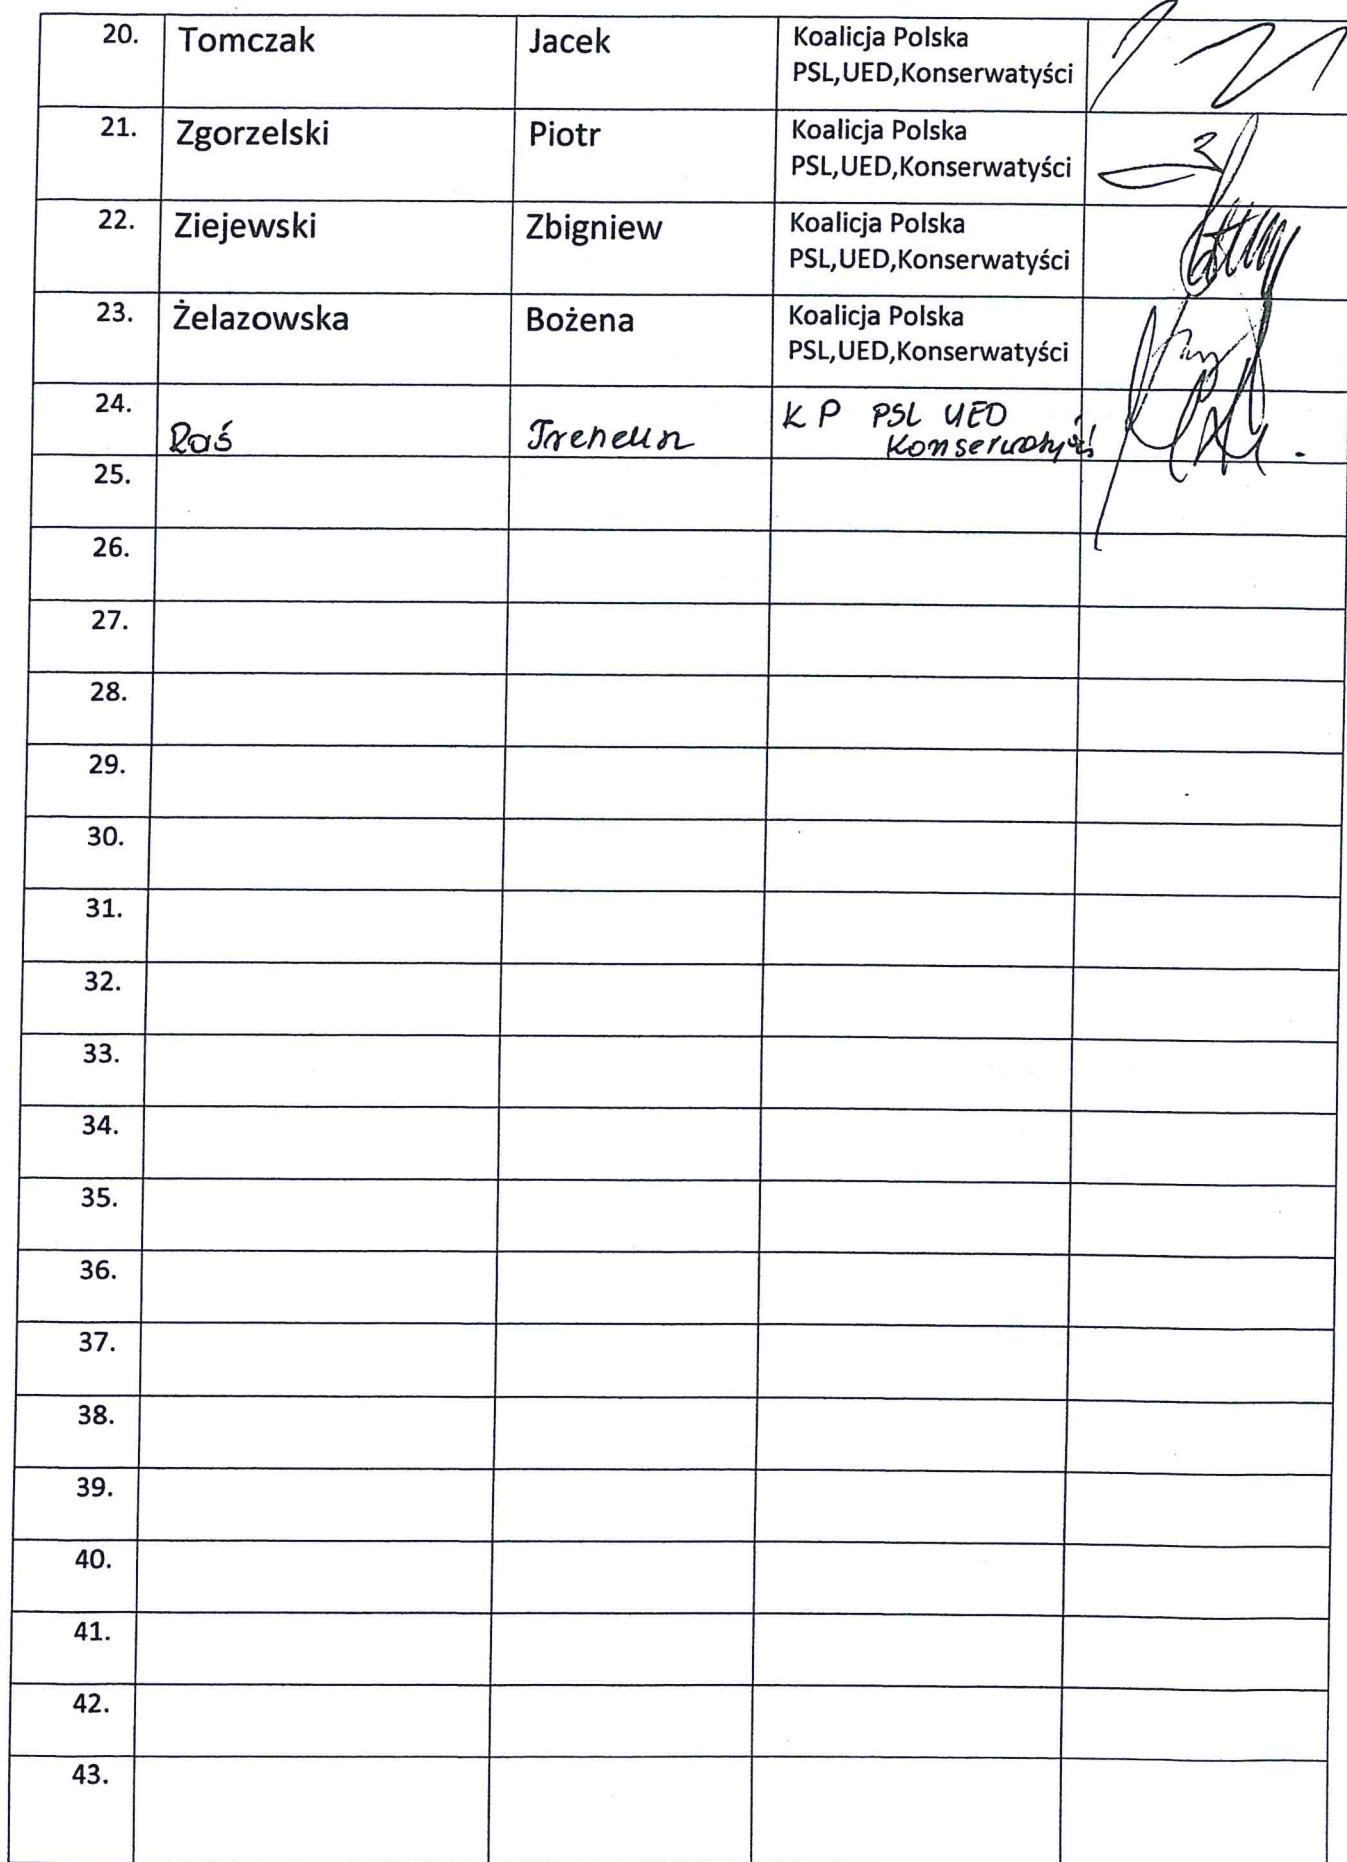 20. Tomczak Jacek Koalicja Polska
PSL,UED,Konserwatyści
21. Zgorzelski Piotr Koalicja Polska
PSL,UED,Konserwatyści
22. Ziejewski Zbigniew Koalicja Polska
PSL,UED,Konserwatyści
23. Żelazowska Bożena Koalicja Polska
PSL,UED,Konserwatyści
24. Raś Ireneusz K P PSL UED
Konserwatyści
25.
26.
27.
28.
29.
30.
31.
32.
33.
34.
35.
36.
37.
38.
39.
40.
41.
42.
43.